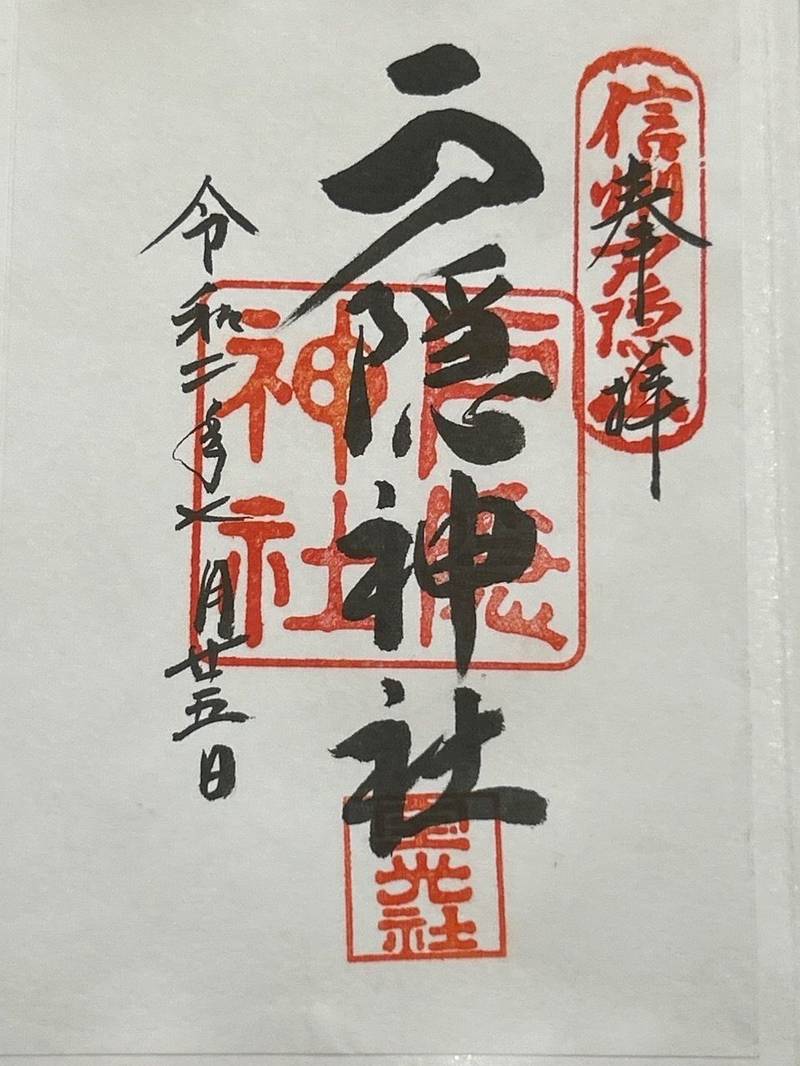 奉拝
信州戸隠
戸隠神社
戸隠神社
宝光社
令和二年七月廿五日